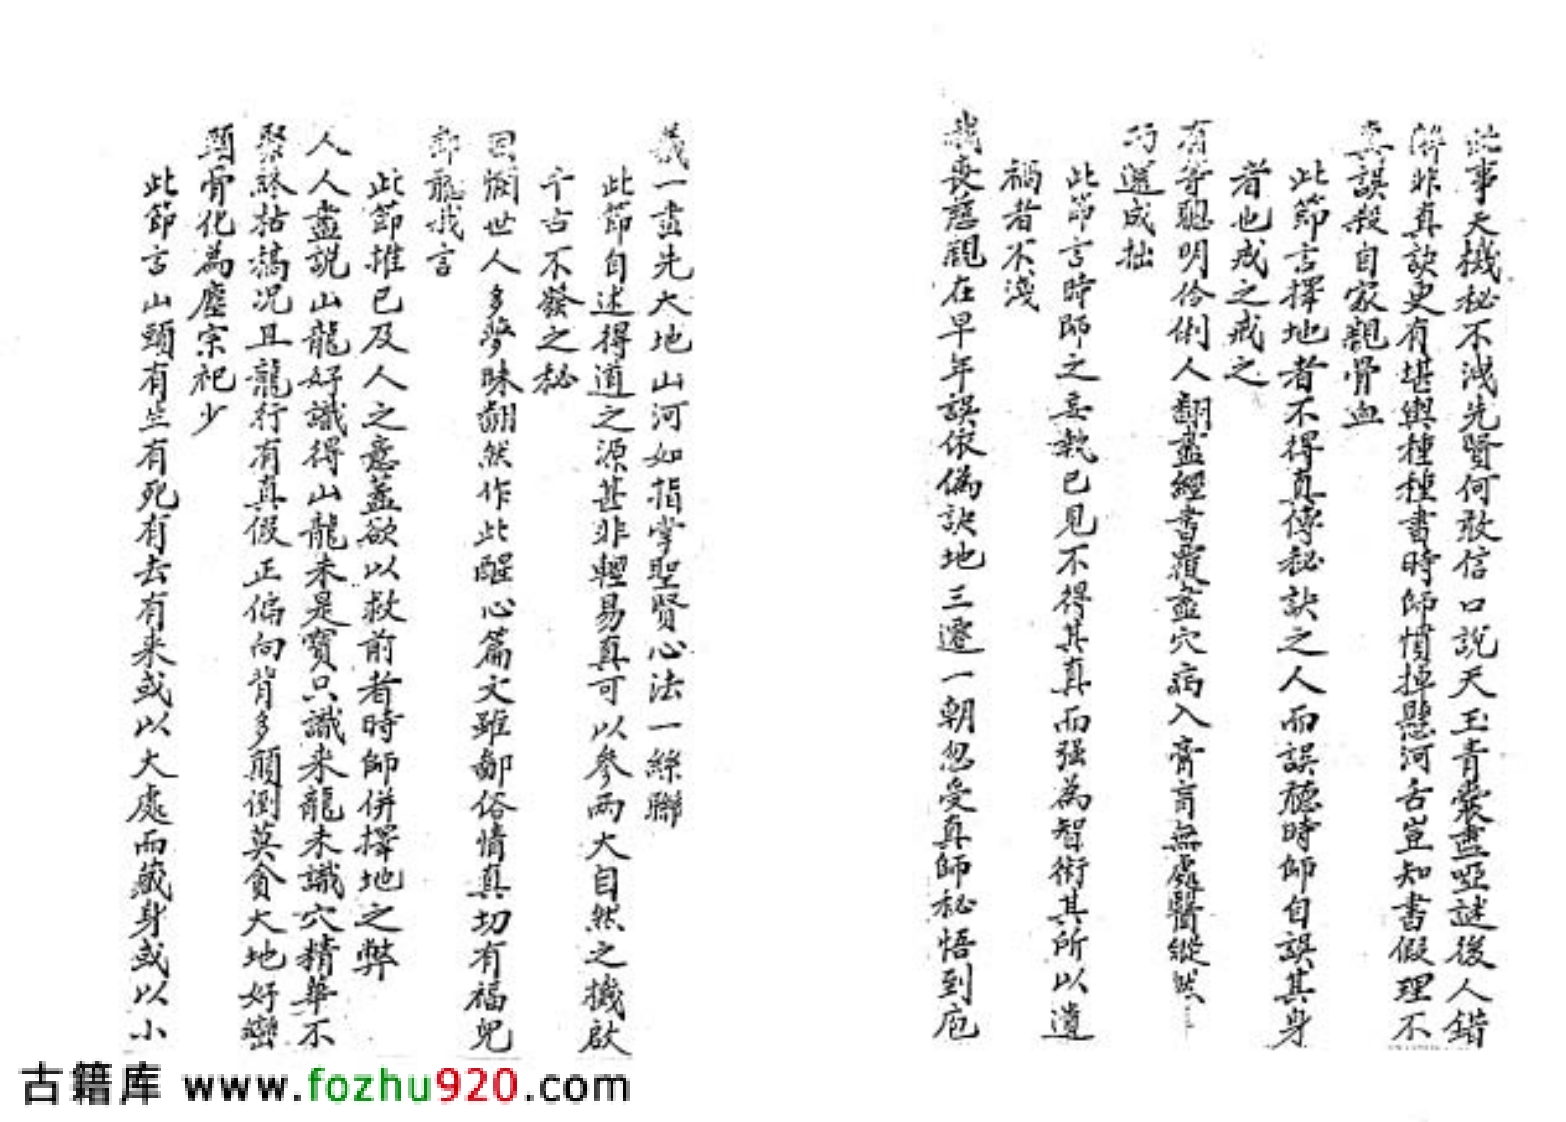 此事天機秘不洩先賢何敢信口說天玉青囊盡啞謎後人錯
解非真訣更有堪輿種種書時師慣掉懸河舌豈知書假理不
真誤殺自家親骨血
此節言擇地者不得真傳秘訣之人而誤聽時師自誤其身
者也戒之戒之
有等聰明伶俐人翻盡經書覆盡穴病入膏肓無處醫縱然
巧選成拙
此節言時師之妄執己見不得其真而强為智術其所以遺
禍者不淺
我喪慈親在早年誤依偽訣地三遷一朝忽受真師秘悟到庖
羲一畫先大地山河如指掌聖賢心法一絲聯
此節自述得道之源甚非輕易真可以參兩大自然之機啟
千古不發之秘
因憫世人多夢昧翻然作此醒心篇文雖鄙俗情真切有福兒
郎聽我言
此節推己及人之意蓋欲以救前者時師併擇地之弊
人人盡說山龍好識得山龍未是寶只識来龍未識穴精華不
聚終枯槁况且龍行有真假正偏向背多顛倒莫貪大地好巒
頭骨化為塵宗祀少
此節言山頭有生有死有去有来或以大處而藏身或以小
古籍库 www.fozhu920.com